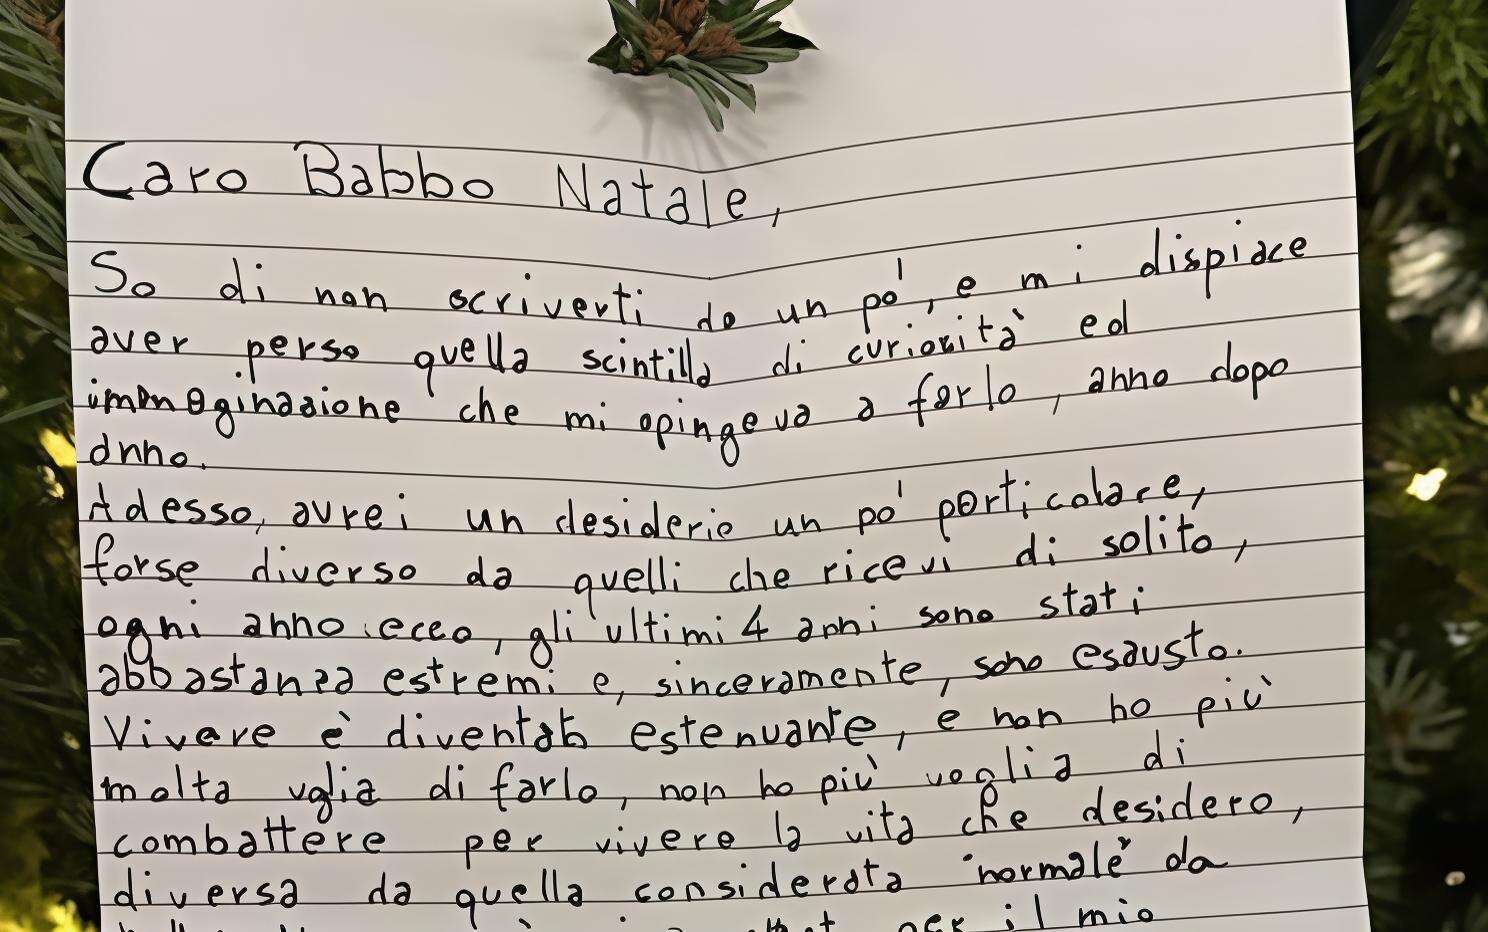 Caro Babbo Natale,
So di non scriverti da un po', e mi dispiace
aver perso quella scintilla di curiosità ed
immaginazione che mi spingeva a farlo, anno dopo
anno.
Adesso, avrei un desiderio un po' particolare,
forse diverso da quelli che ricevi di solito,
ogni anno. ecco, gli ultimi 4 anni sono stati
abbastanza estremi e, sinceramente, sono esausto.
Vivere è diventato estenuante, e non ho più
molta voglia di farlo, non ho più voglia di
combattere per vivere la vita che desidero,
diversa da quella considerata "normale" da
per il mio